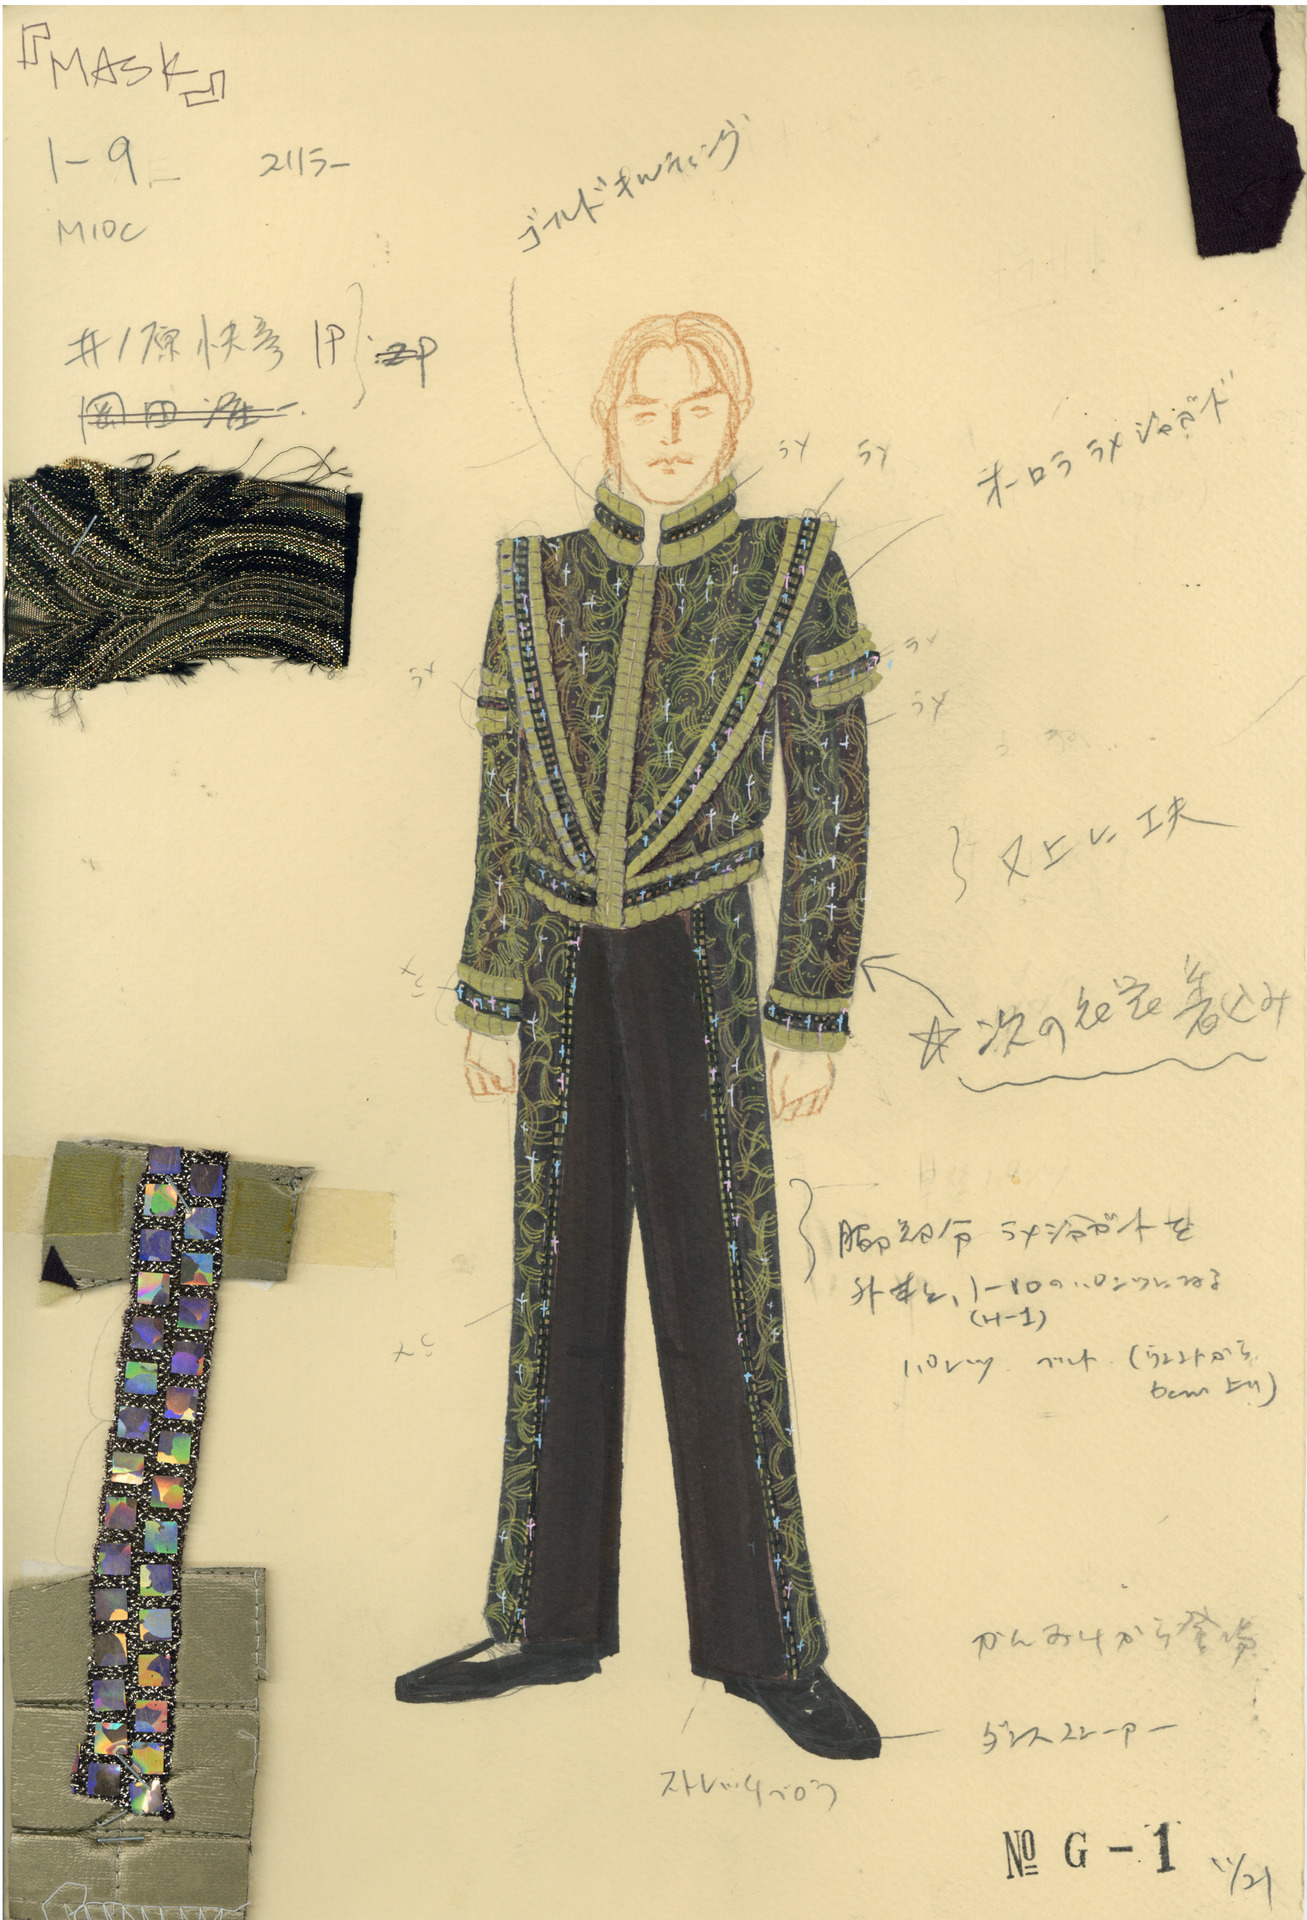 『MASK』
1-9 スリラー
M10C
井ノ原快彦 1P
岡田准一
ゴールドキルティング
ラメ
ラメ
オーロララメジョーゼット
ラメ
ラメ
ラメ
又上に工夫
☆次の衣裳着込み
ラメジョーゼットを
外すと、1-10のパンツになる
(H-1)
パンツ ベルト (ウエストから
ダンススニーカー
ストレッチベロア
№ G-1
11/21